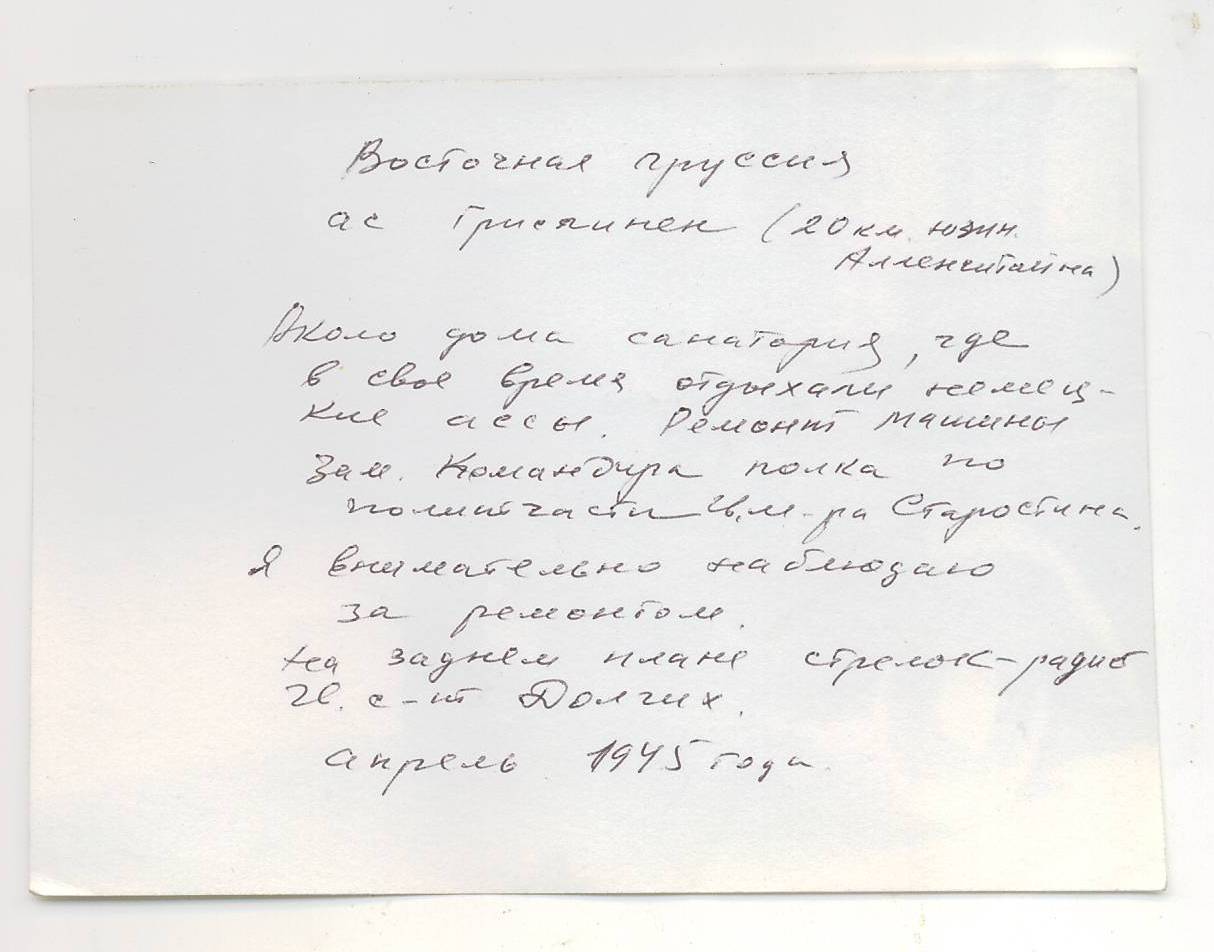 Восточная пруссия
ас Грислинен (20 км. южн.
Алленштайна)
Около дома санатория, где
в свое время отдыхали немец-
кие ассы. Ремонт машины
Зам. Командира полка по
политчасти Гв. м-ра Старостина.
Я внимательно наблюдаю
за ремонтом.
на заднем плане стрелок-радист
Гв. с-нт Долгих.
апрель 1945 года.